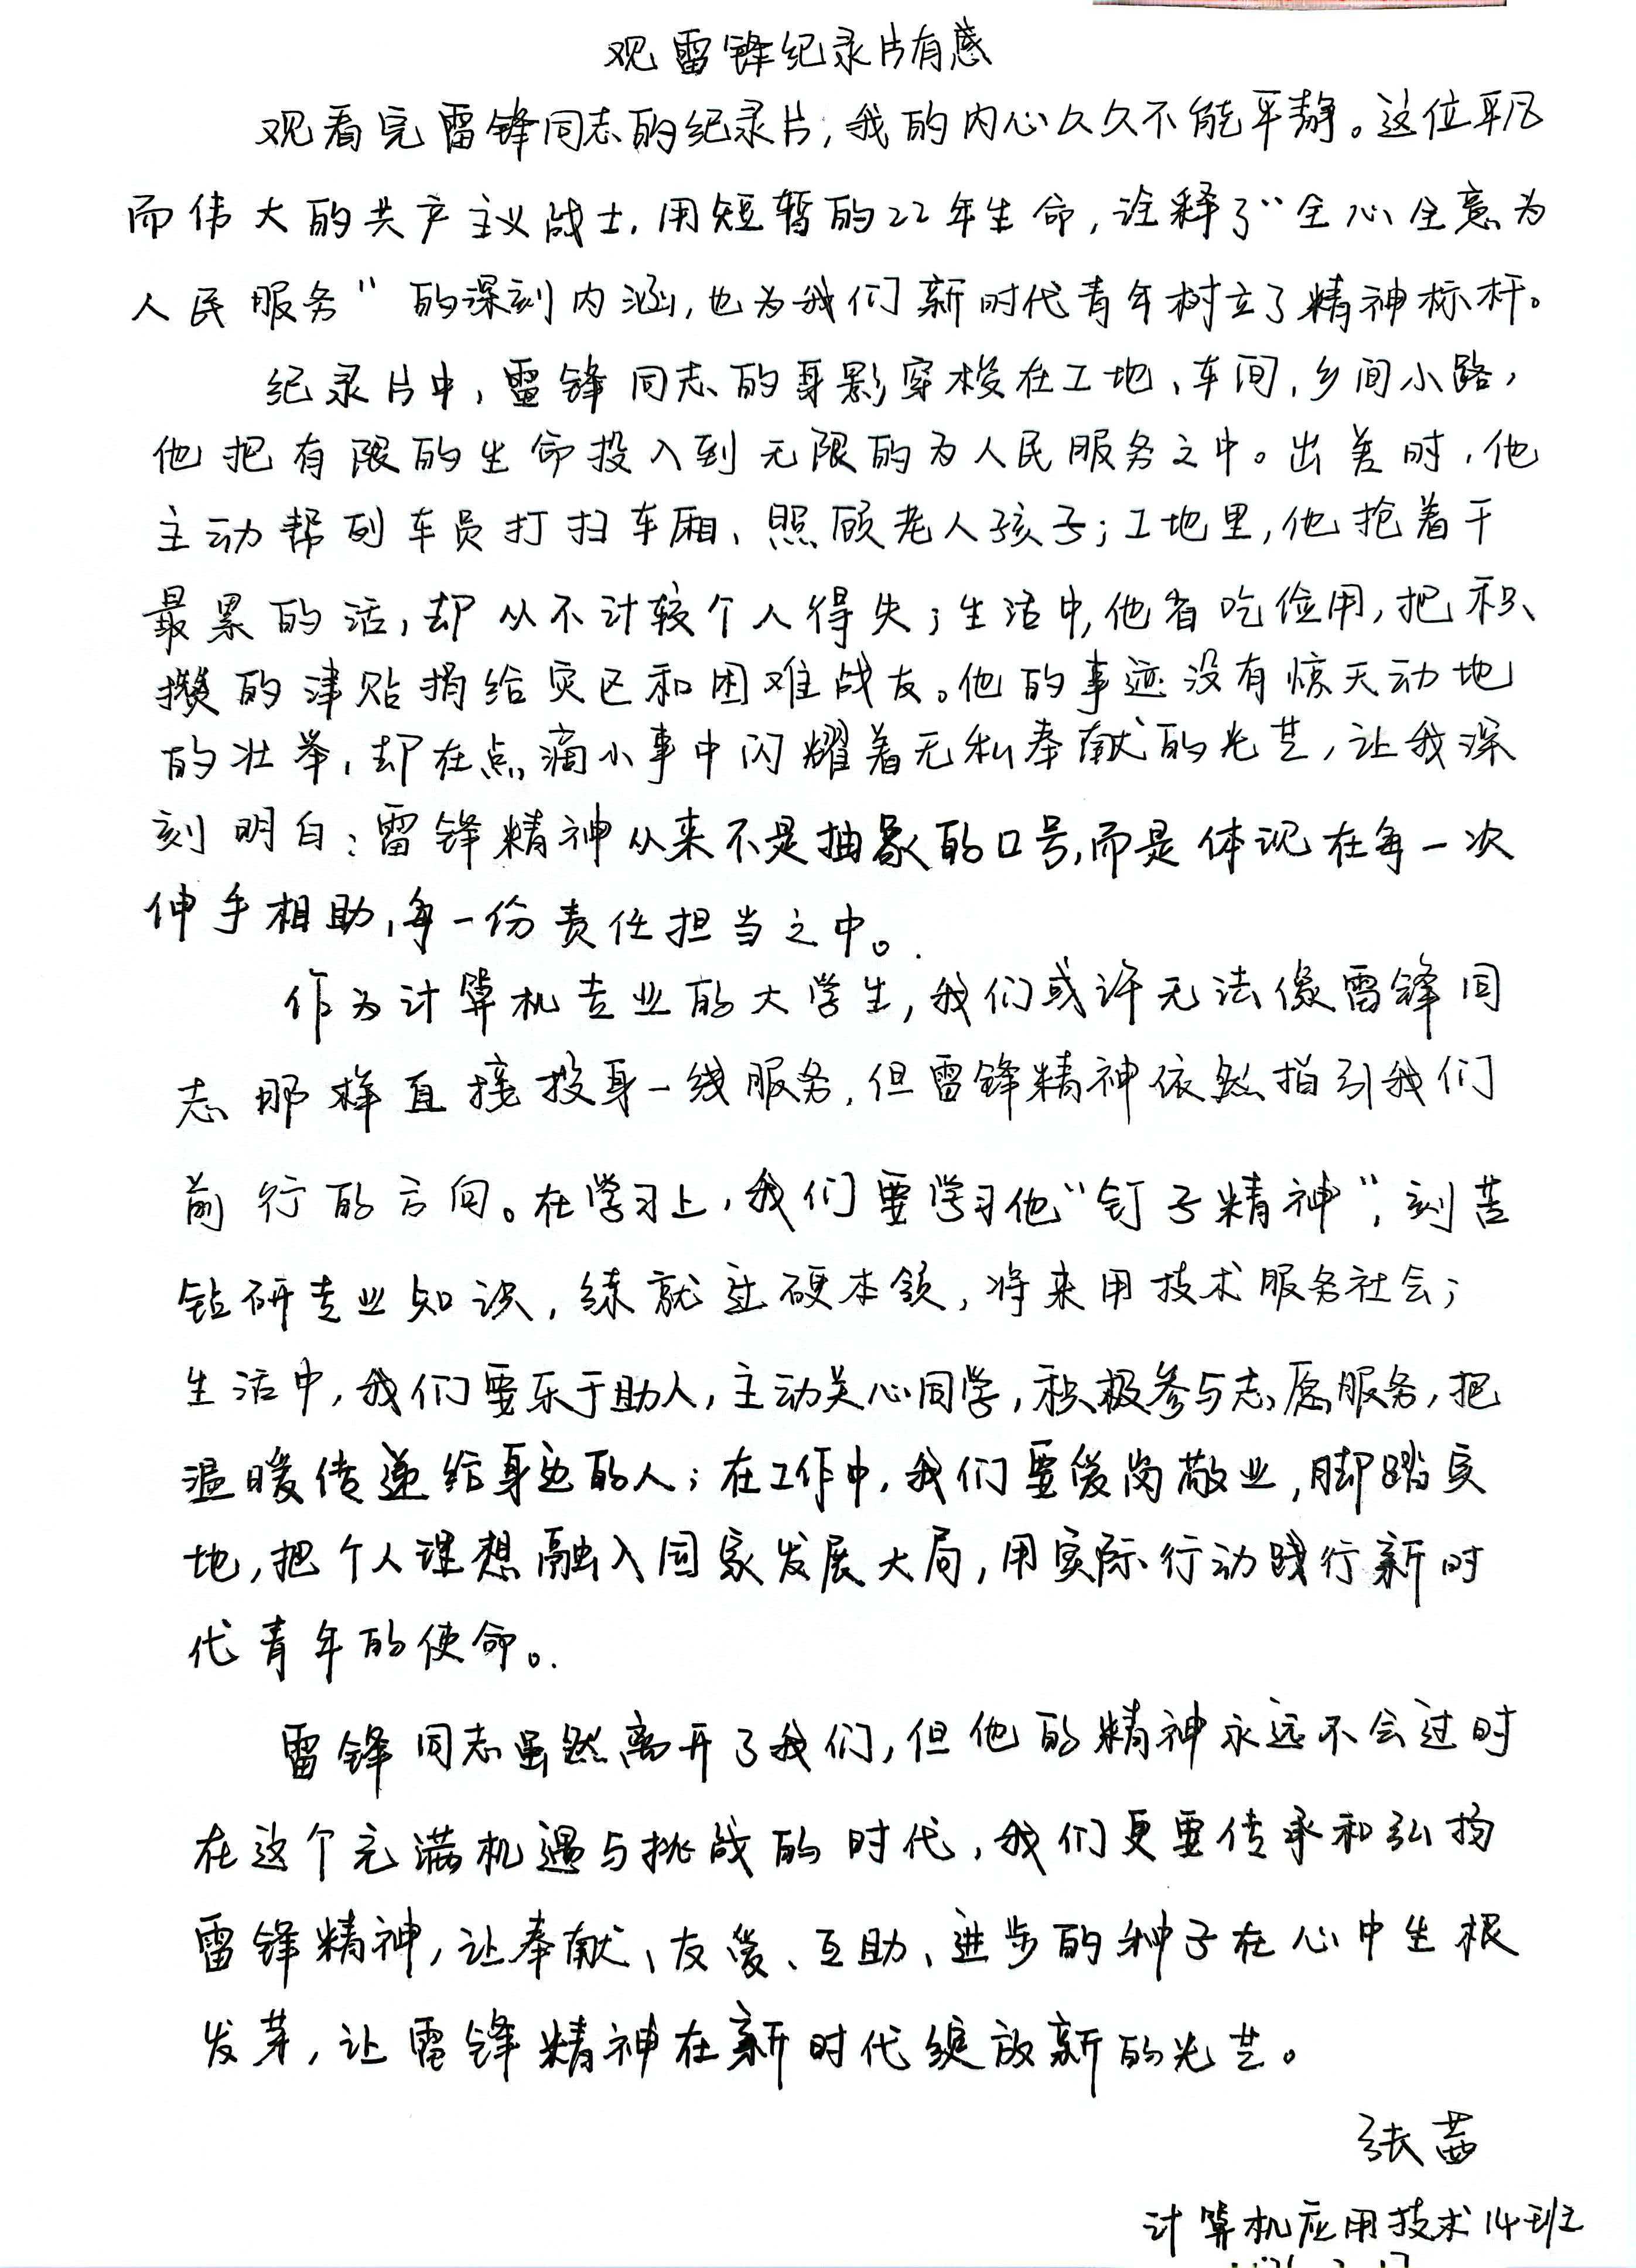 观雷锋纪录片有感
观看完雷锋同志的纪录片，我的内心久久不能平静。这位平凡
而伟大的共产主义战士，用短暂的22年生命，诠释了“全心全意为
人民服务”的深刻内涵，也为我们新时代青年树立了精神标杆。
纪录片中，雷锋同志的身影穿梭在工地、车间，乡间小路，
他把有限的生命投入到无限的为人民服务之中。出差时，他
主动帮列车员打扫车厢、照顾老人孩子；工地里，他抢着干
最累的活，却从不计较个人得失；生活中，他省吃俭用，把积
攒的津贴捐给灾区和困难战友。他的事迹没有惊天动地
的壮举，却在点滴小事中闪耀着无私奉献的光芒，让我深
刻明白：雷锋精神从来不是抽象的口号，而是体现在每一次
伸手相助，每一份责任担当之中。
作为计算机专业的大学生，我们或许无法像雷锋同
志那样直接投身一线服务，但雷锋精神依然指引我们
前行的方向。在学习上，我们要学习他“钉子精神”，刻苦
钻研专业知识，练就过硬本领，将来用技术服务社会；
生活中，我们要乐于助人，主动关心同学，积极参与志愿服务，把
温暖传递给身边的人；在工作中，我们要爱岗敬业，脚踏实
地，把个人理想融入国家发展大局，用实际行动践行新时
代青年的使命。
雷锋同志虽然离开了我们，但他的精神永远不会过时
在这个充满机遇与挑战的时代，我们更要传承和弘扬
雷锋精神，让奉献、友爱、互助、进步的种子在心中生根
发芽，让雷锋精神在新时代绽放新的光芒。
张茜
计算机应用技术14班